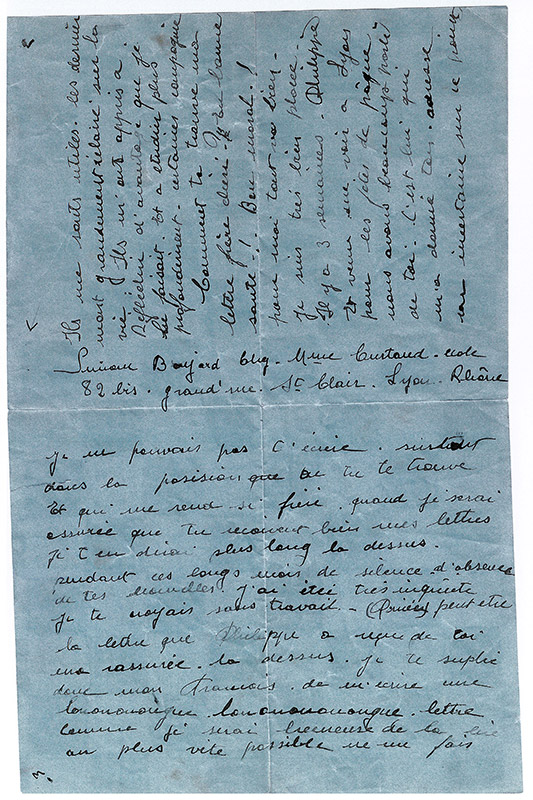 2
Ils me sonts utiles. les dernier
mont grandement éclairé sur la
vie, Ils m'ont appris a
Réflechir d'avantage que je
faisait. Et a etudier plus
profondement. certaines compagnie
Comment te trouve ma
lettre frère chéri? En bonne
santé! ! Bon moral. !
pour moi tout va bien.
je suis très bien placé.
Il y a 3 semaines. Philippe
Et venu me voir a Lyon
pour les fêtes de pâque
nous avons beaucoups parlé
de toi. C'est lui qui
m'a donné ton adresse
incertaine sur ce point
Bayard chez. Mme
82 bis. grand'rue. St Clair. Lyon. Rhône
je ne pouvais pas t'écrire. surtout
dans la posision que tu te trouve
Et qui me rend si fière. quand je serai
assurée que tu recoient bien mes lettres
je t'en dirai plus long la dessus.
pendant ces longs mois de silence d'absence
de tes nouvelles j'ai été très inquiète
je te croyais sans travail. peut être
la lettre que Philippe a reçue de toi
m'a rassurée. la dessus. je te suplie
donc mon François. de m'écrire une
lonononongue lononononongue. lettre
comme je serai heureuse de la lire
au plus vite possible ne me fais
3